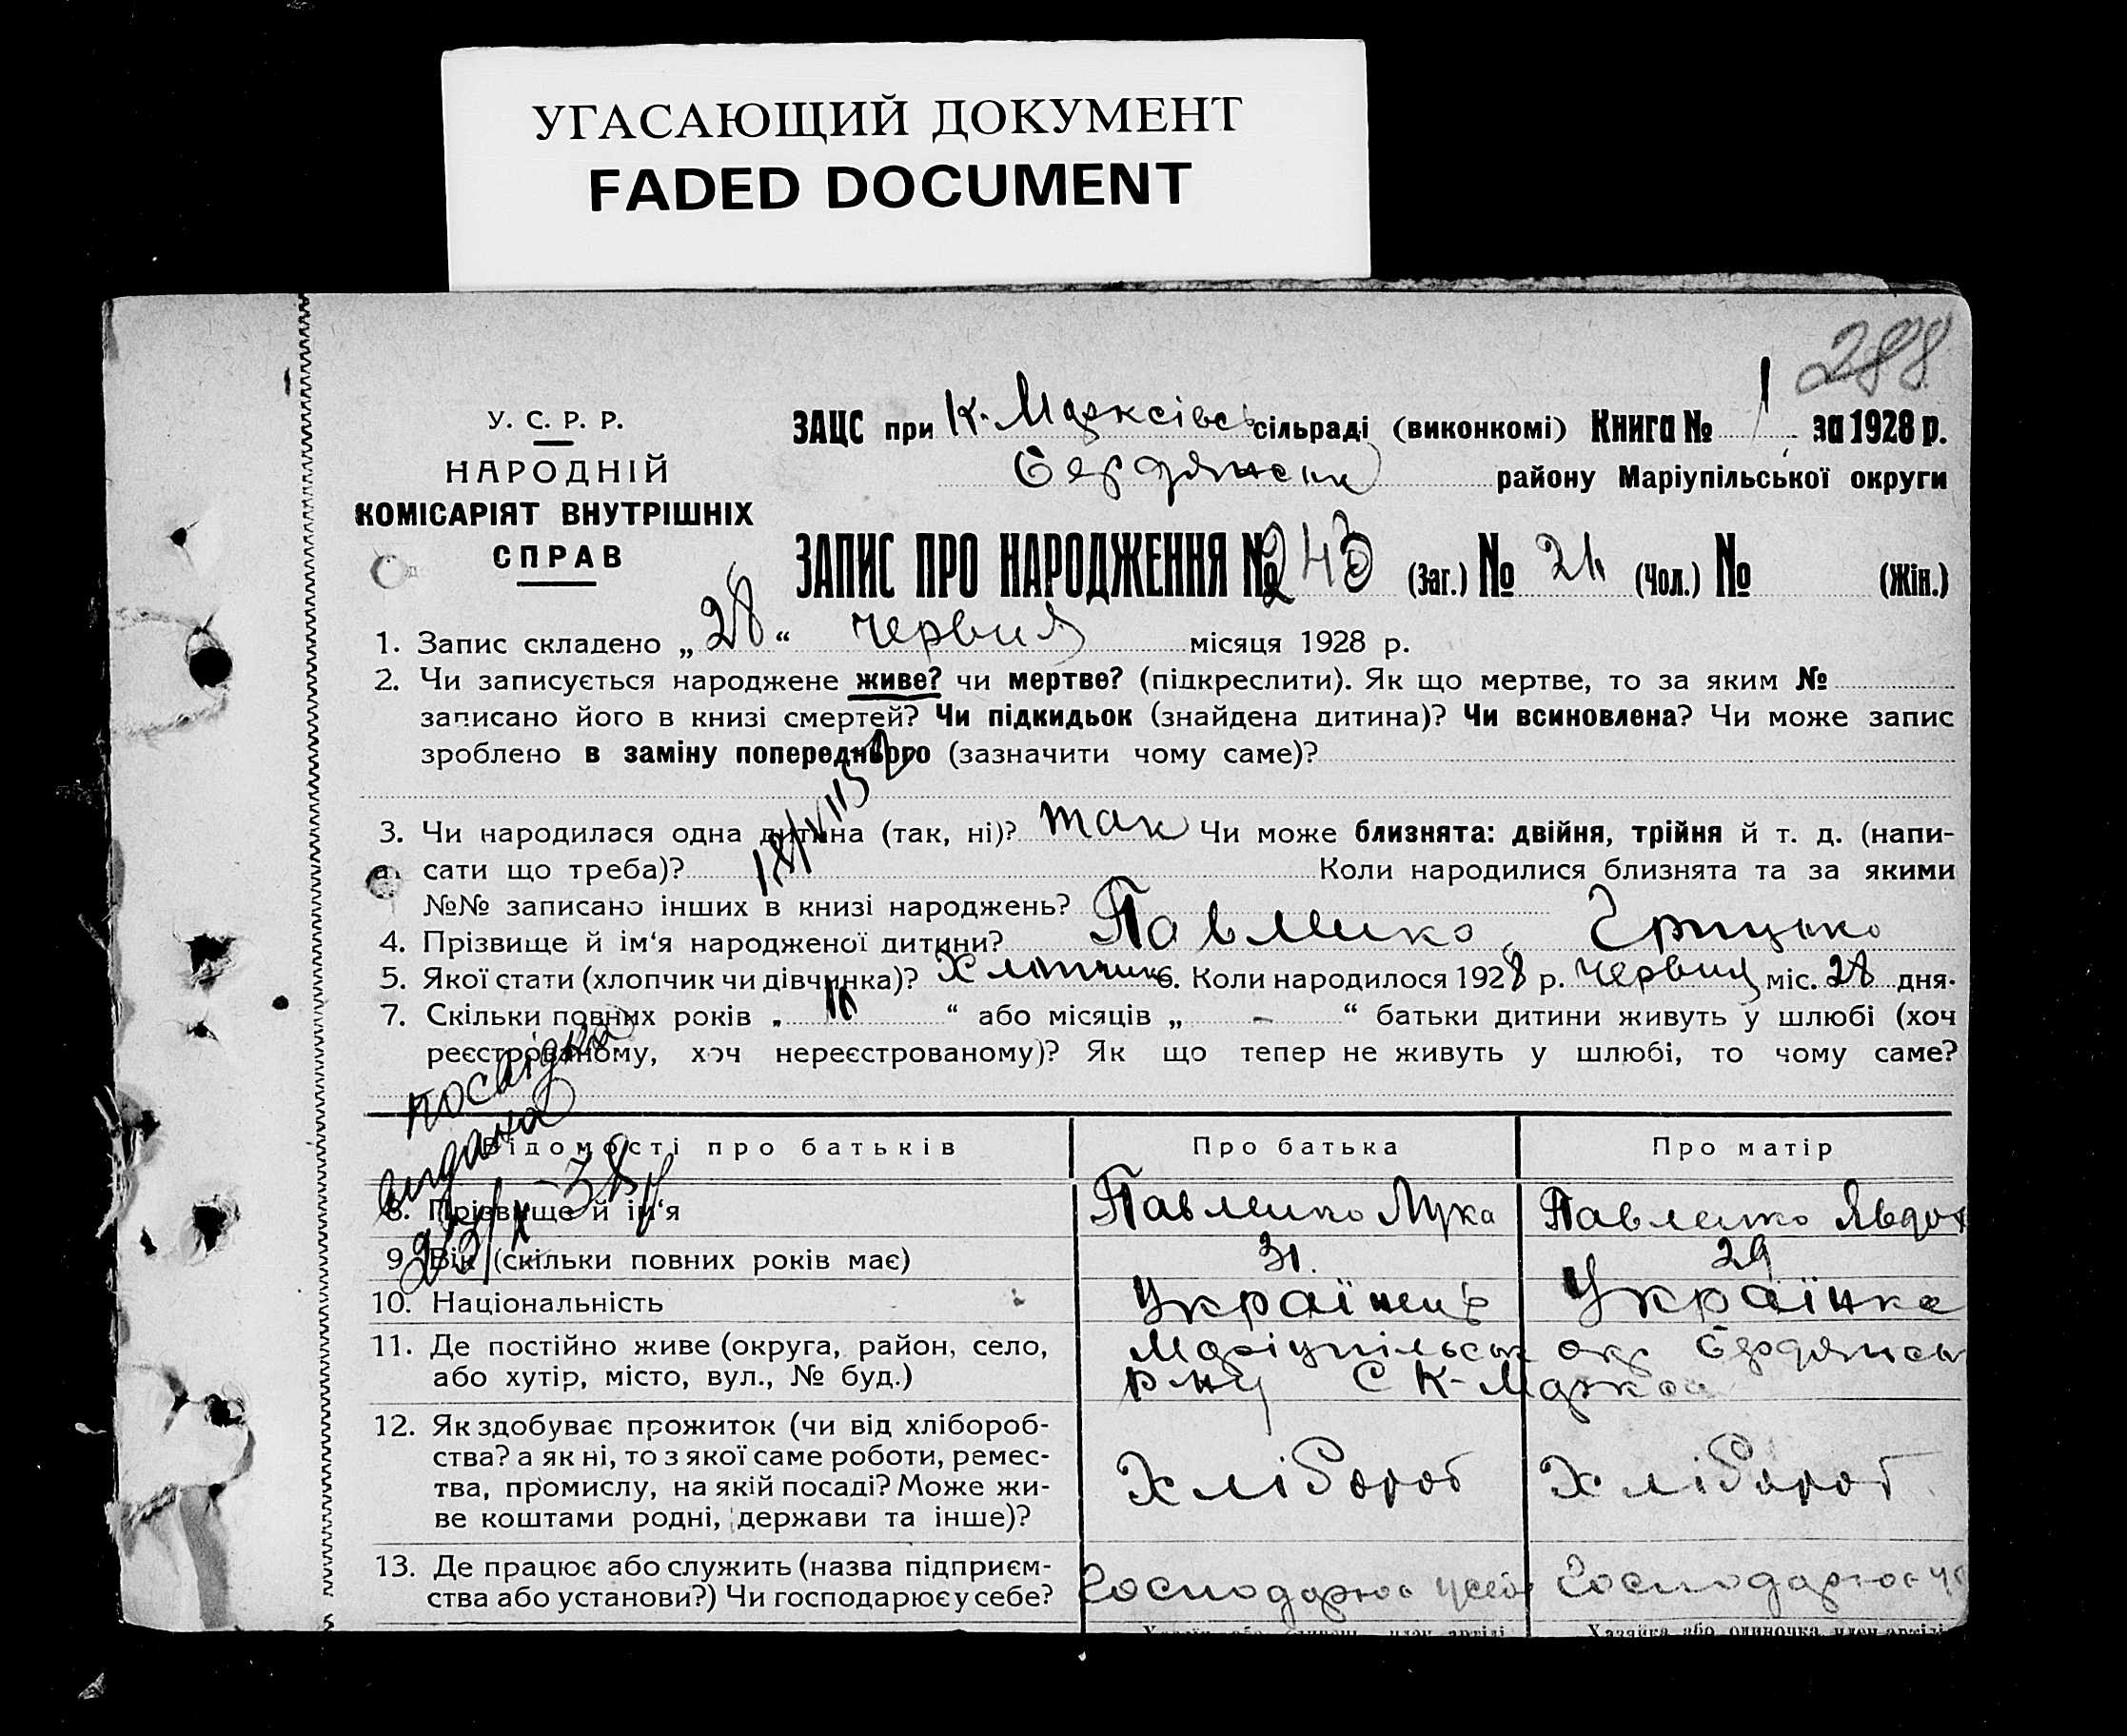 УГАСАЮЩИЙ ДОКУМЕНТ
FADED DOCUMENT
288
У. С. Р. Р.
НАРОДНІЙ
КОМІСАРІЯТ ВНУТРІШНІХ
СПРАВ
ЗАЦС при К. Марксівсь сільраді (виконкомі) Книга № 1 за 1928 р.
Бердянськ району Маріупільської округи
ЗАПИС ПРО НАРОДЖЕННЯ № 243 (Заг.) № 21 (Чол.) № (Жін.)
1. Запис складено „28“ червня місяця 1928 р.
2. Чи записується народжене живе? чи мертве? (підкреслити). Як що мертве, то за яким №
записано його в книзі смертей? Чи підкидьок (знайдена дитина)? Чи всиновлена? Чи може запис
зроблено в заміну попереднього (зазначити чому саме)?
3. Чи народилася одна дитина (так, ні)? так Чи може близнята: двійня, трійня й т. д. (напи-
сати що треба)? Коли народилися близнята та за якими
№№ записано інших в книзі народжень?
4. Прізвище й ім‘я народженої дитини? Павленко Грицько
5. Якої стати (хлопчик чи дівчинка)? Хлопчик 6. Коли народилося 1928 р. червня міс. 28 дня.
7. Скільки повних років „ 10 “ або місяців „ - “ батьки дитини живуть у шлюбі (хоч
реєстрованому, хоч нереєстрованому)? Як що тепер не живуть у шлюбі, то чому саме?
посвідка
видана
Відомості про батьків Про батька Про матір
8. Прізвище й ім‘я Павленко Лука Павленко Явдох
9. Вік (скільки повних років має) 31. 29
10. Національність Українець Українка
11. Де постійно живе (округа, район, село, Маріупільськ окр Бердянськ
або хутір, місто, вул., № буд.) р-ну С К-Маркса
12. Як здобуває прожиток (чи від хлібороб-
ства? а як ні, то з якої саме роботи, ремес-
тва, промислу, на якій посаді? Може жи- Хлібороб Хлібороб
ве коштами родні, держави та інше)?
13. Де працює або служить (назва підприєм-
ства або установи?) Чи господарює у себе? Господарює у себе Господарює у
Хазяйка або одиночка, член артілі